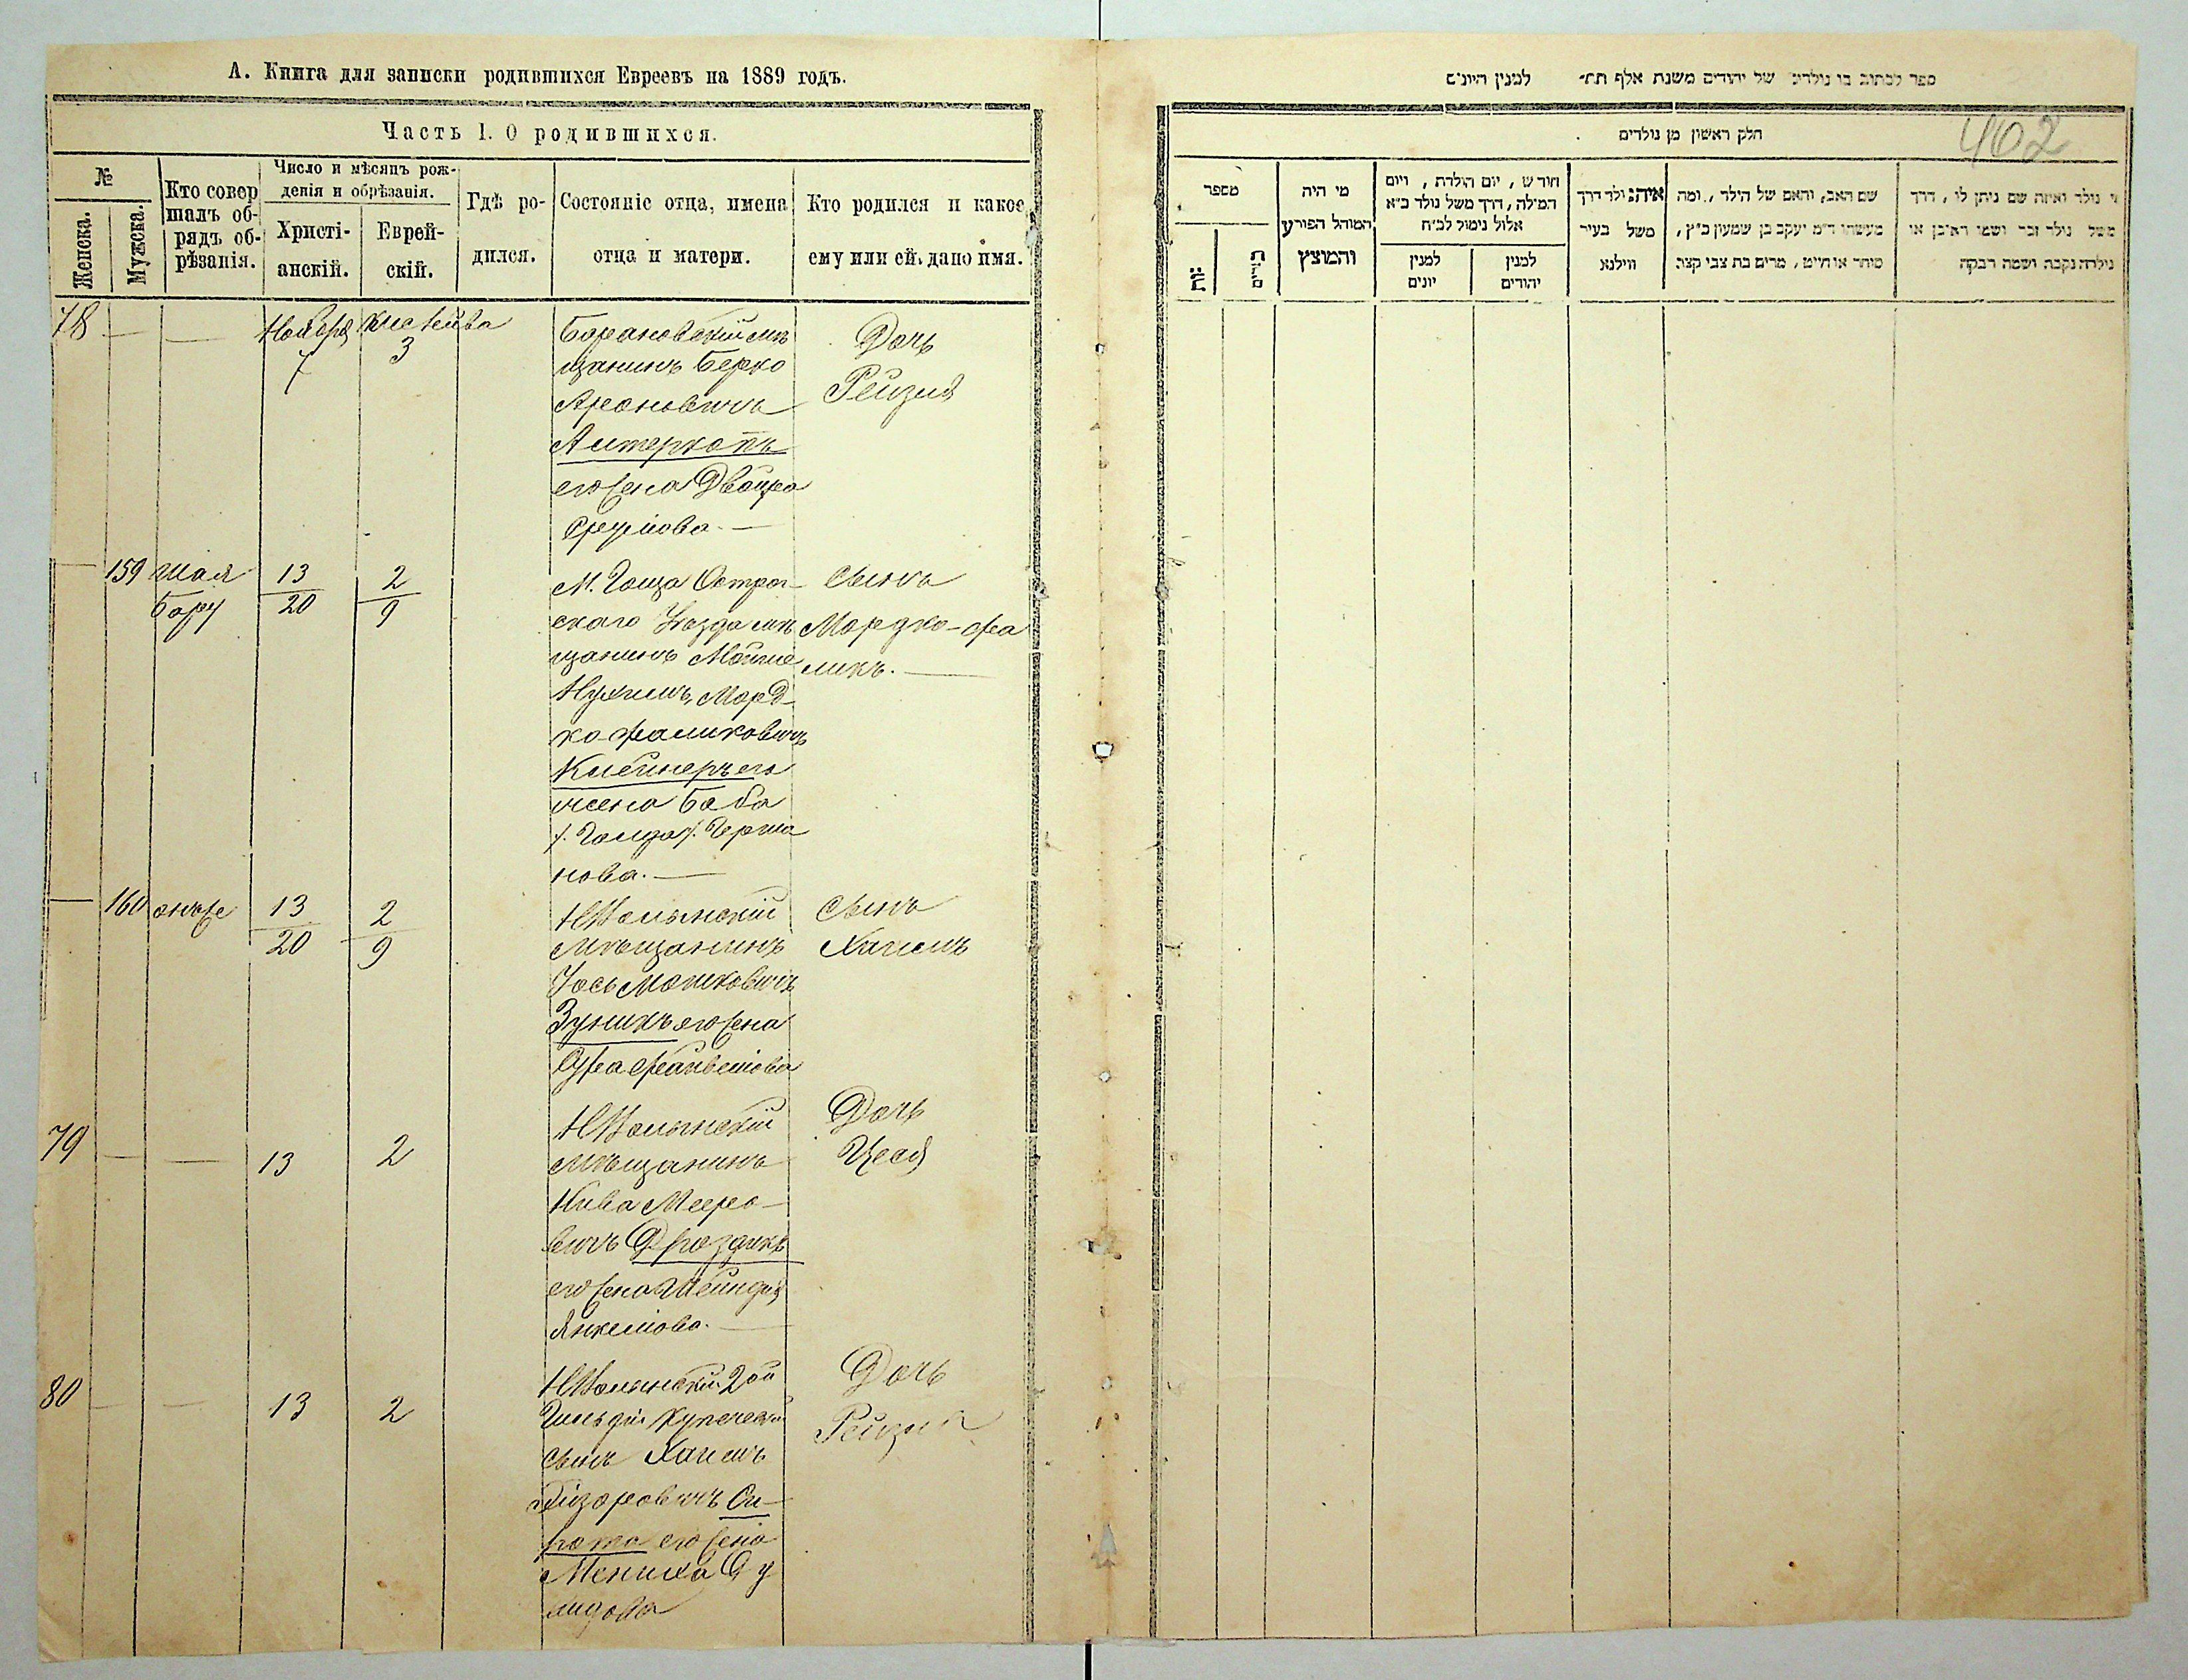 А. Книга для записки родившихся Евреевъ на 1889 годъ.
Часть 1. О родившихся.
№
Женска.
Мужска.
Кто совер
шалъ об-
рядъ об-
рѣзанія.
Число и мѣсяцъ рож-
денія и обрѣзанія.
Христі-
анскій.
Еврей-
скій.
Гдѣ ро-
дился.
Состояніе отца, имена
отца и матери.
Кто родился и какое
ему или ей дано имя.
78 — — Ноября 7 Кислейва 3
Барановскій мѣ
щанинъ Берко
Ароновичъ
его жена Двойра
Сруліова. —
Дочь
Рейзля
— 159 Шая
Бару
13
20
2
9
М. Гоща Острог-
скаго Уѣзда мѣ
щанинъ Мойше
НухимъМорд-
ко-Фаликовичъ
Клейнеръ его
жена Баба
/. Голда /. Герша
нова. —
Сынъ
Мордко-Фа
ликъ. —
— 160 онъже
13
20
2
9
НВолынскій
Мѣщанинъ
Іось Мошковичъ
его жена
Сура
Сынъ
Хаимъ
79 — — 13 2
НВолынскій
Мѣщанинъ
Кива Мееро-
вичъ Дроздикъ
его жена Шейндля
Янкеліова. —
Дочь
Цеся
80 — — 13 2
НВолынскій 2ой
Гильдіи Купеческій
сынъ Хаимъ
Лізоровичъ Си-
рота его жена
Мениха Ду
видова
Дочь
Рейзля
ספר לכתוב בו נולדים של יהודים משנת אלף תת״ למנין היונים
חלק ראשון מן נולדים
402
מספר
זכרים
מי היה
המוהל הפורע
והמוצץ
חודש, יום הולדת, ויום
המילה, דרך משל נולד כ״א
אלול נימול לכ״ח
למנין
יונים
למנין
יהודים
איה ולד דרך
משל בעיר
ווילנא
שם האב, והאם של הילד, ומה
מעשהו ד״מ יעקב בן שמעון כ״ץ,
סוחר או חייט, מרים בת צבי קצב
מי נולד ואיזה שם ניתן לו, דרך
משל נולד זכר ושמו ראובן או
נולדה נקבה ושמה רבקה